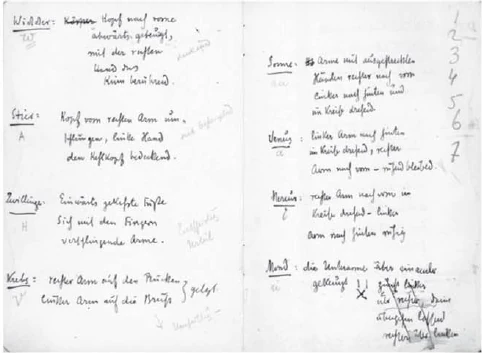 Widder: Kopf nach vorne
abwärts gebeugt,
mit der rechten
Hand das
Kinn berührend.
Stier: Kopf vom rechten Arm um-
schlungen, linke Hand
den Kehlkopf bedeckend.
A
Zwillinge: Einwärts gekehrte Füße
Sich mit den Fingern
verschlingende Arme.
H
Krebs: rechter Arm auf den Rücken
linker Arm auf die Brust } gelegt.
Sonne: Arme mit ausgestreckten
Händen rechter nach vorn
linker nach hinten und
im Kreise drehend.
Venus: linker Arm nach hinten
im Kreise drehend, rechter
Arm nach vorn - ruhend bleibend.
Merkur: rechter Arm nach vorn im
Kreise drehend - linker
Arm nach hinten ruhig
Mond: die Unterarme über einander
gekreuzt !! linker
über rechter, dann
rechter über linken
1
2
3
4
5
6
7